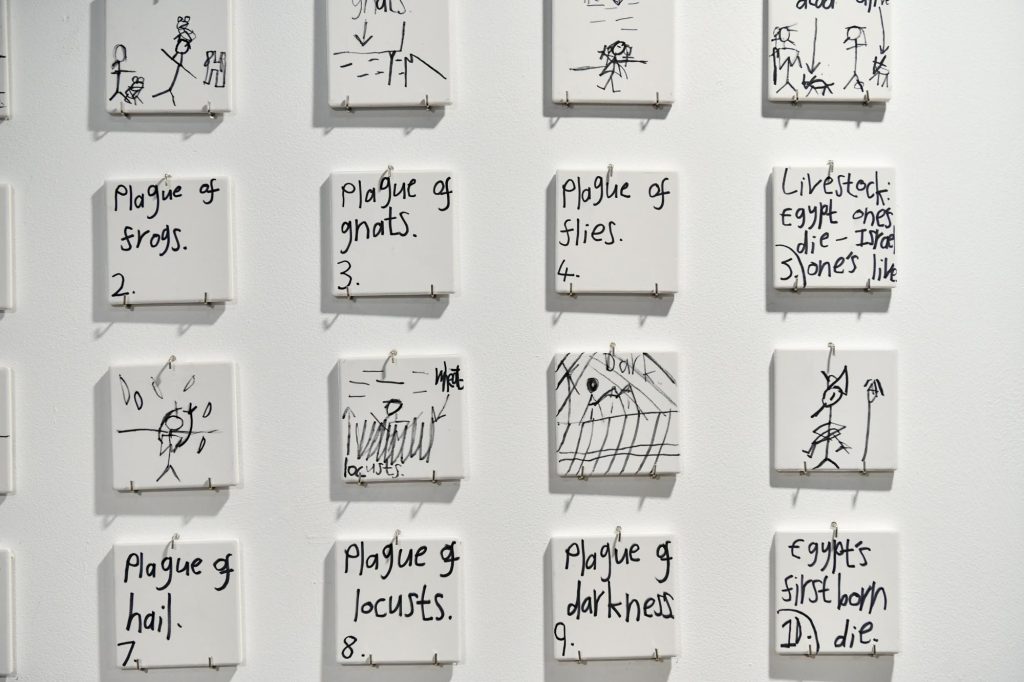 gnats.
Plague of
frogs.
2.
Plague of
gnats.
3.
Plague of
flies.
4.
Livestock:
Egypt ones
die – Israel
5. one's live
wheat
locusts.
Dark.
Plague of
hail.
7.
Plague of
locusts.
8.
Plague of
darkness
9.
Egypt's
first born
10. die.